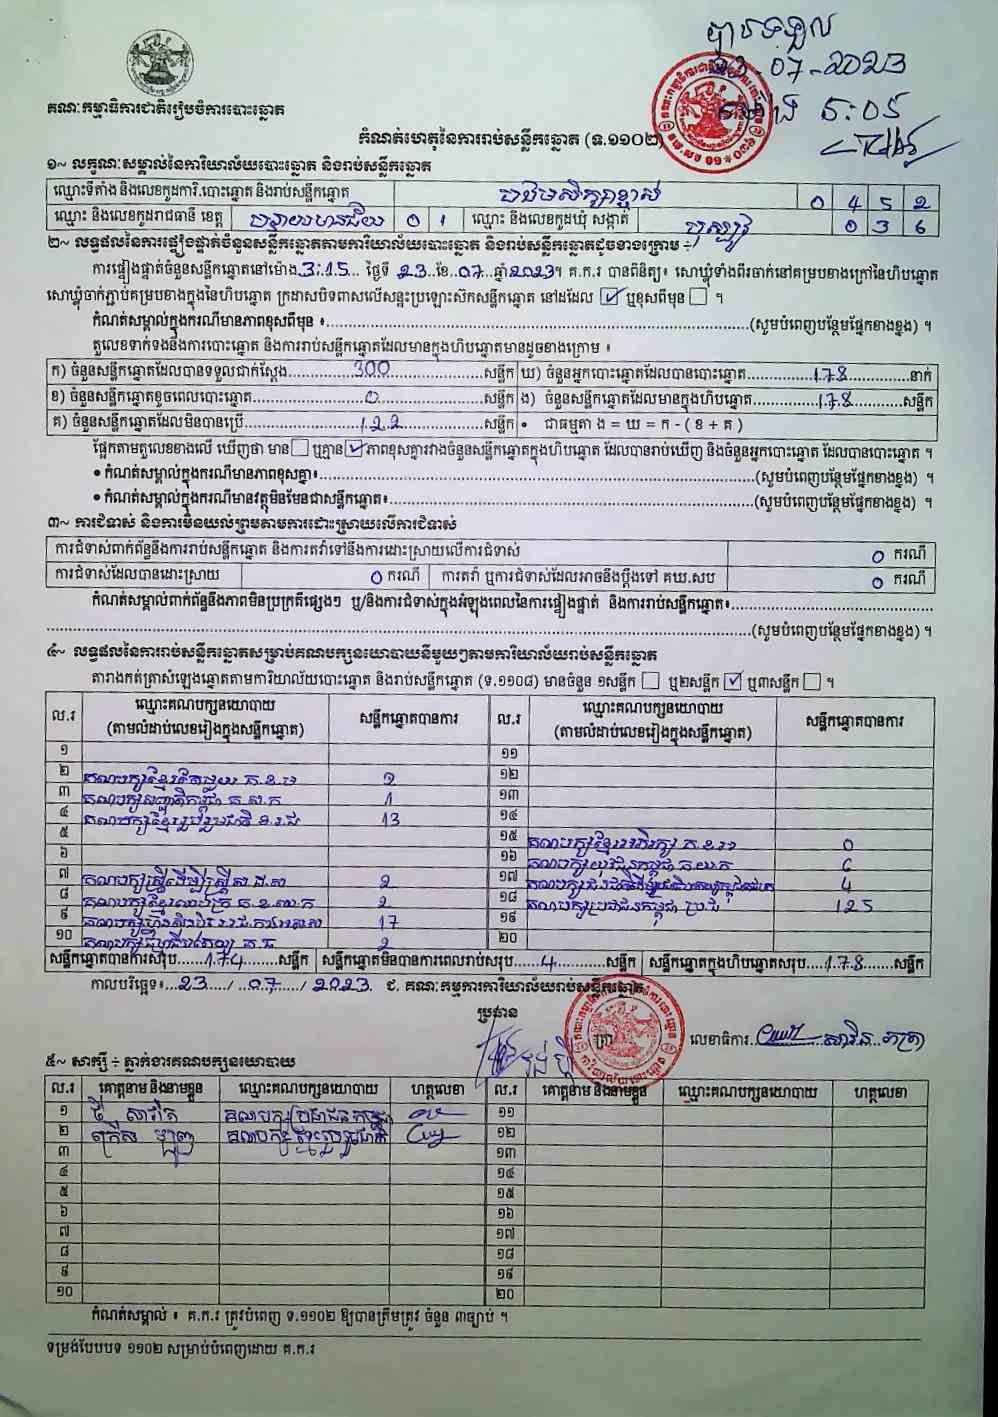 បានទទួល
23-07-2023
ម៉ោង ៥:០៥
គណៈកម្មាធិការជាតិរៀបចំការបោះឆ្នោត
កំណត់ហេតុនៃការរាប់សន្លឹកឆ្នោត (ទ.១១០២)
១~ លក្ខណៈសម្គាល់នៃការិយាល័យបោះឆ្នោត និងរាប់សន្លឹកឆ្នោត
ឈ្មោះទីតាំង និងលេខកូដការិ.បោះឆ្នោត និងរាប់សន្លឹកឆ្នោត បឋមសិក្សាខ្ចាស់ 0 4 5 2
ឈ្មោះ និងលេខកូដរាជធានី ខេត្ត បន្ទាយមានជ័យ 0 1 ឈ្មោះ និងលេខកូដឃុំ សង្កាត់ 0 3 6
២~ លទ្ធផលនៃការផ្ទៀងផ្ទាត់ចំនួនសន្លឹកឆ្នោតតាមការិយាល័យបោះឆ្នោត និងរាប់សន្លឹកឆ្នោតដូចខាងក្រោម ÷
ការផ្ទៀងផ្ទាត់ចំនួនសន្លឹកឆ្នោតនៅម៉ោង 3:15 ថ្ងៃទី 23 ខែ 07 ឆ្នាំ 2023។ គ.ក.រ បានពិនិត្យ៖ សោឃ្លុំទាំងពីរចាក់នៅគម្របខាងក្រៅនៃហិបឆ្នោត
សោឃ្លុំចាក់ភ្ជាប់គម្របខាងក្នុងនៃហិបឆ្នោត ក្រដាសបិទពាសលើសន្ទះប្រឡោះស៊កសន្លឹកឆ្នោត នៅដដែល ☑ ឬខុសពីមុន ☐ ។
កំណត់សម្គាល់ក្នុងករណីមានភាពខុសពីមុន ៖ (សូមបំពេញបន្ថែមផ្នែកខាងខ្នង) ។
តួលេខទាក់ទងនឹងការបោះឆ្នោត និងការរាប់សន្លឹកឆ្នោតដែលមានក្នុងហិបឆ្នោតមានដូចខាងក្រោម ៖
ក) ចំនួនសន្លឹកឆ្នោតដែលបានទទួលជាក់ស្តែង 300 សន្លឹក ឃ) ចំនួនអ្នកបោះឆ្នោតដែលបានបោះឆ្នោត 178 នាក់
ខ) ចំនួនសន្លឹកឆ្នោតខូចពេលបោះឆ្នោត 0 សន្លឹក ង) ចំនួនសន្លឹកឆ្នោតដែលមានក្នុងហិបឆ្នោត 178 សន្លឹក
គ) ចំនួនសន្លឹកឆ្នោតដែលមិនបានប្រើ 122 សន្លឹក • ជាធម្មតា ង = ឃ = ក - ( ខ + គ )
ផ្អែកតាមតួលេខខាងលើ ឃើញថា មាន ☐ ឬគ្មាន ☑ ភាពខុសគ្នារវាងចំនួនសន្លឹកឆ្នោតក្នុងហិបឆ្នោត ដែលបានរាប់ឃើញ និងចំនួនអ្នកបោះឆ្នោត ដែលបានបោះឆ្នោត ។
• កំណត់សម្គាល់ក្នុងករណីមានភាពខុសគ្នា៖ (សូមបំពេញបន្ថែមផ្នែកខាងខ្នង) ។
• កំណត់សម្គាល់ក្នុងករណីមានវត្ថុមិនមែនជាសន្លឹកឆ្នោត៖ (សូមបំពេញបន្ថែមផ្នែកខាងខ្នង) ។
៣~ ការជំទាស់ និងការមិនយល់ព្រមតាមការដោះស្រាយលើការជំទាស់
ការជំទាស់ពាក់ព័ន្ធនឹងការរាប់សន្លឹកឆ្នោត និងការតវ៉ាទៅនឹងការដោះស្រាយលើការជំទាស់ 0 ករណី
ការជំទាស់ដែលបានដោះស្រាយ 0 ករណី ការតវ៉ា ឬការជំទាស់ដែលអាចនឹងប្តឹងទៅ គឃ.សប 0 ករណី
កំណត់សម្គាល់ពាក់ព័ន្ធនឹងភាពមិនប្រក្រតីផ្សេងៗ ឬ/និងការជំទាស់ក្នុងអំឡុងពេលនៃការផ្ទៀងផ្ទាត់ និងការរាប់សន្លឹកឆ្នោត៖
(សូមបំពេញបន្ថែមផ្នែកខាងខ្នង) ។
៤~ លទ្ធផលនៃការរាប់សន្លឹកឆ្នោតសម្រាប់គណបក្សនយោបាយនីមួយៗតាមការិយាល័យរាប់សន្លឹកឆ្នោត
តារាងកត់ត្រាសំឡេងឆ្នោតតាមការិយាល័យបោះឆ្នោត និងរាប់សន្លឹកឆ្នោត (ទ.១១០៨) មានចំនួន ១សន្លឹក ☐ ឬ២សន្លឹក ☑ ឬ៣សន្លឹក ☐ ។
ល.រ ឈ្មោះគណបក្សនយោបាយ (តាមលំដាប់លេខរៀងក្នុងសន្លឹកឆ្នោត) សន្លឹកឆ្នោតបានការ ល.រ ឈ្មោះគណបក្សនយោបាយ (តាមលំដាប់លេខរៀងក្នុងសន្លឹកឆ្នោត) សន្លឹកឆ្នោតបានការ
១ ១១
២ គណបក្សខ្មែរតែមួយ គ.ខ.ម 2 ១២
៣ គណបក្សសញ្ជាតិកម្ពុជា គ.ស.ក 1 ១៣
៤ គណបក្សខ្មែររួបរួមជាតិ 13 ១៤
៥ ១៥ គណបក្សខ្មែរអភិរក្ស 0
៦ ១៦ គណបក្សយុវជនកម្ពុជា គ.យ.ក 6
៧ គណបក្សស្រ្តីដើម្បីស្រ្តី 2 ១៧ 4
៨ 2 ១៨ គណបក្សប្រជាជនកម្ពុជា 125
៩ គណបក្សហ៊្វុនស៊ិនប៉ិច 17 ១៩
១០ គណបក្សធម្មាធិបតេយ្យ គ.ធ 2 ២០
សន្លឹកឆ្នោតបានការសរុប 174 សន្លឹក សន្លឹកឆ្នោតមិនបានការពេលរាប់សរុប 4 សន្លឹក សន្លឹកឆ្នោតក្នុងហិបឆ្នោតសរុប 178 សន្លឹក
កាលបរិច្ឆេទ៖ 23 / 07 / 2023 ជ. គណៈកម្មការការិយាល័យរាប់សន្លឹកឆ្នោត
ប្រធាន
ត្រា
លេខាធិការ
៥~ សាក្សី ÷ ភ្នាក់ងារគណបក្សនយោបាយ
ល.រ គោត្តនាម និងនាមខ្លួន ឈ្មោះគណបក្សនយោបាយ ហត្ថលេខា ល.រ គោត្តនាម និងនាមខ្លួន ឈ្មោះគណបក្សនយោបាយ ហត្ថលេខា
១ គណបក្សប្រជាជនកម្ពុជា ១១
២ គណបក្សខ្មែររួបរួមជាតិ ១២
៣ ១៣
៤ ១៤
៥ ១៥
៦ ១៦
៧ ១៧
៨ ១៨
៩ ១៩
១០ ២០
កំណត់សម្គាល់ ៖ គ.ក.រ ត្រូវបំពេញ ទ.១១០២ ឱ្យបានត្រឹមត្រូវ ចំនួន ៣ច្បាប់ ។
ទម្រង់បែបបទ ១១០២ សម្រាប់បំពេញដោយ គ.ក.រ